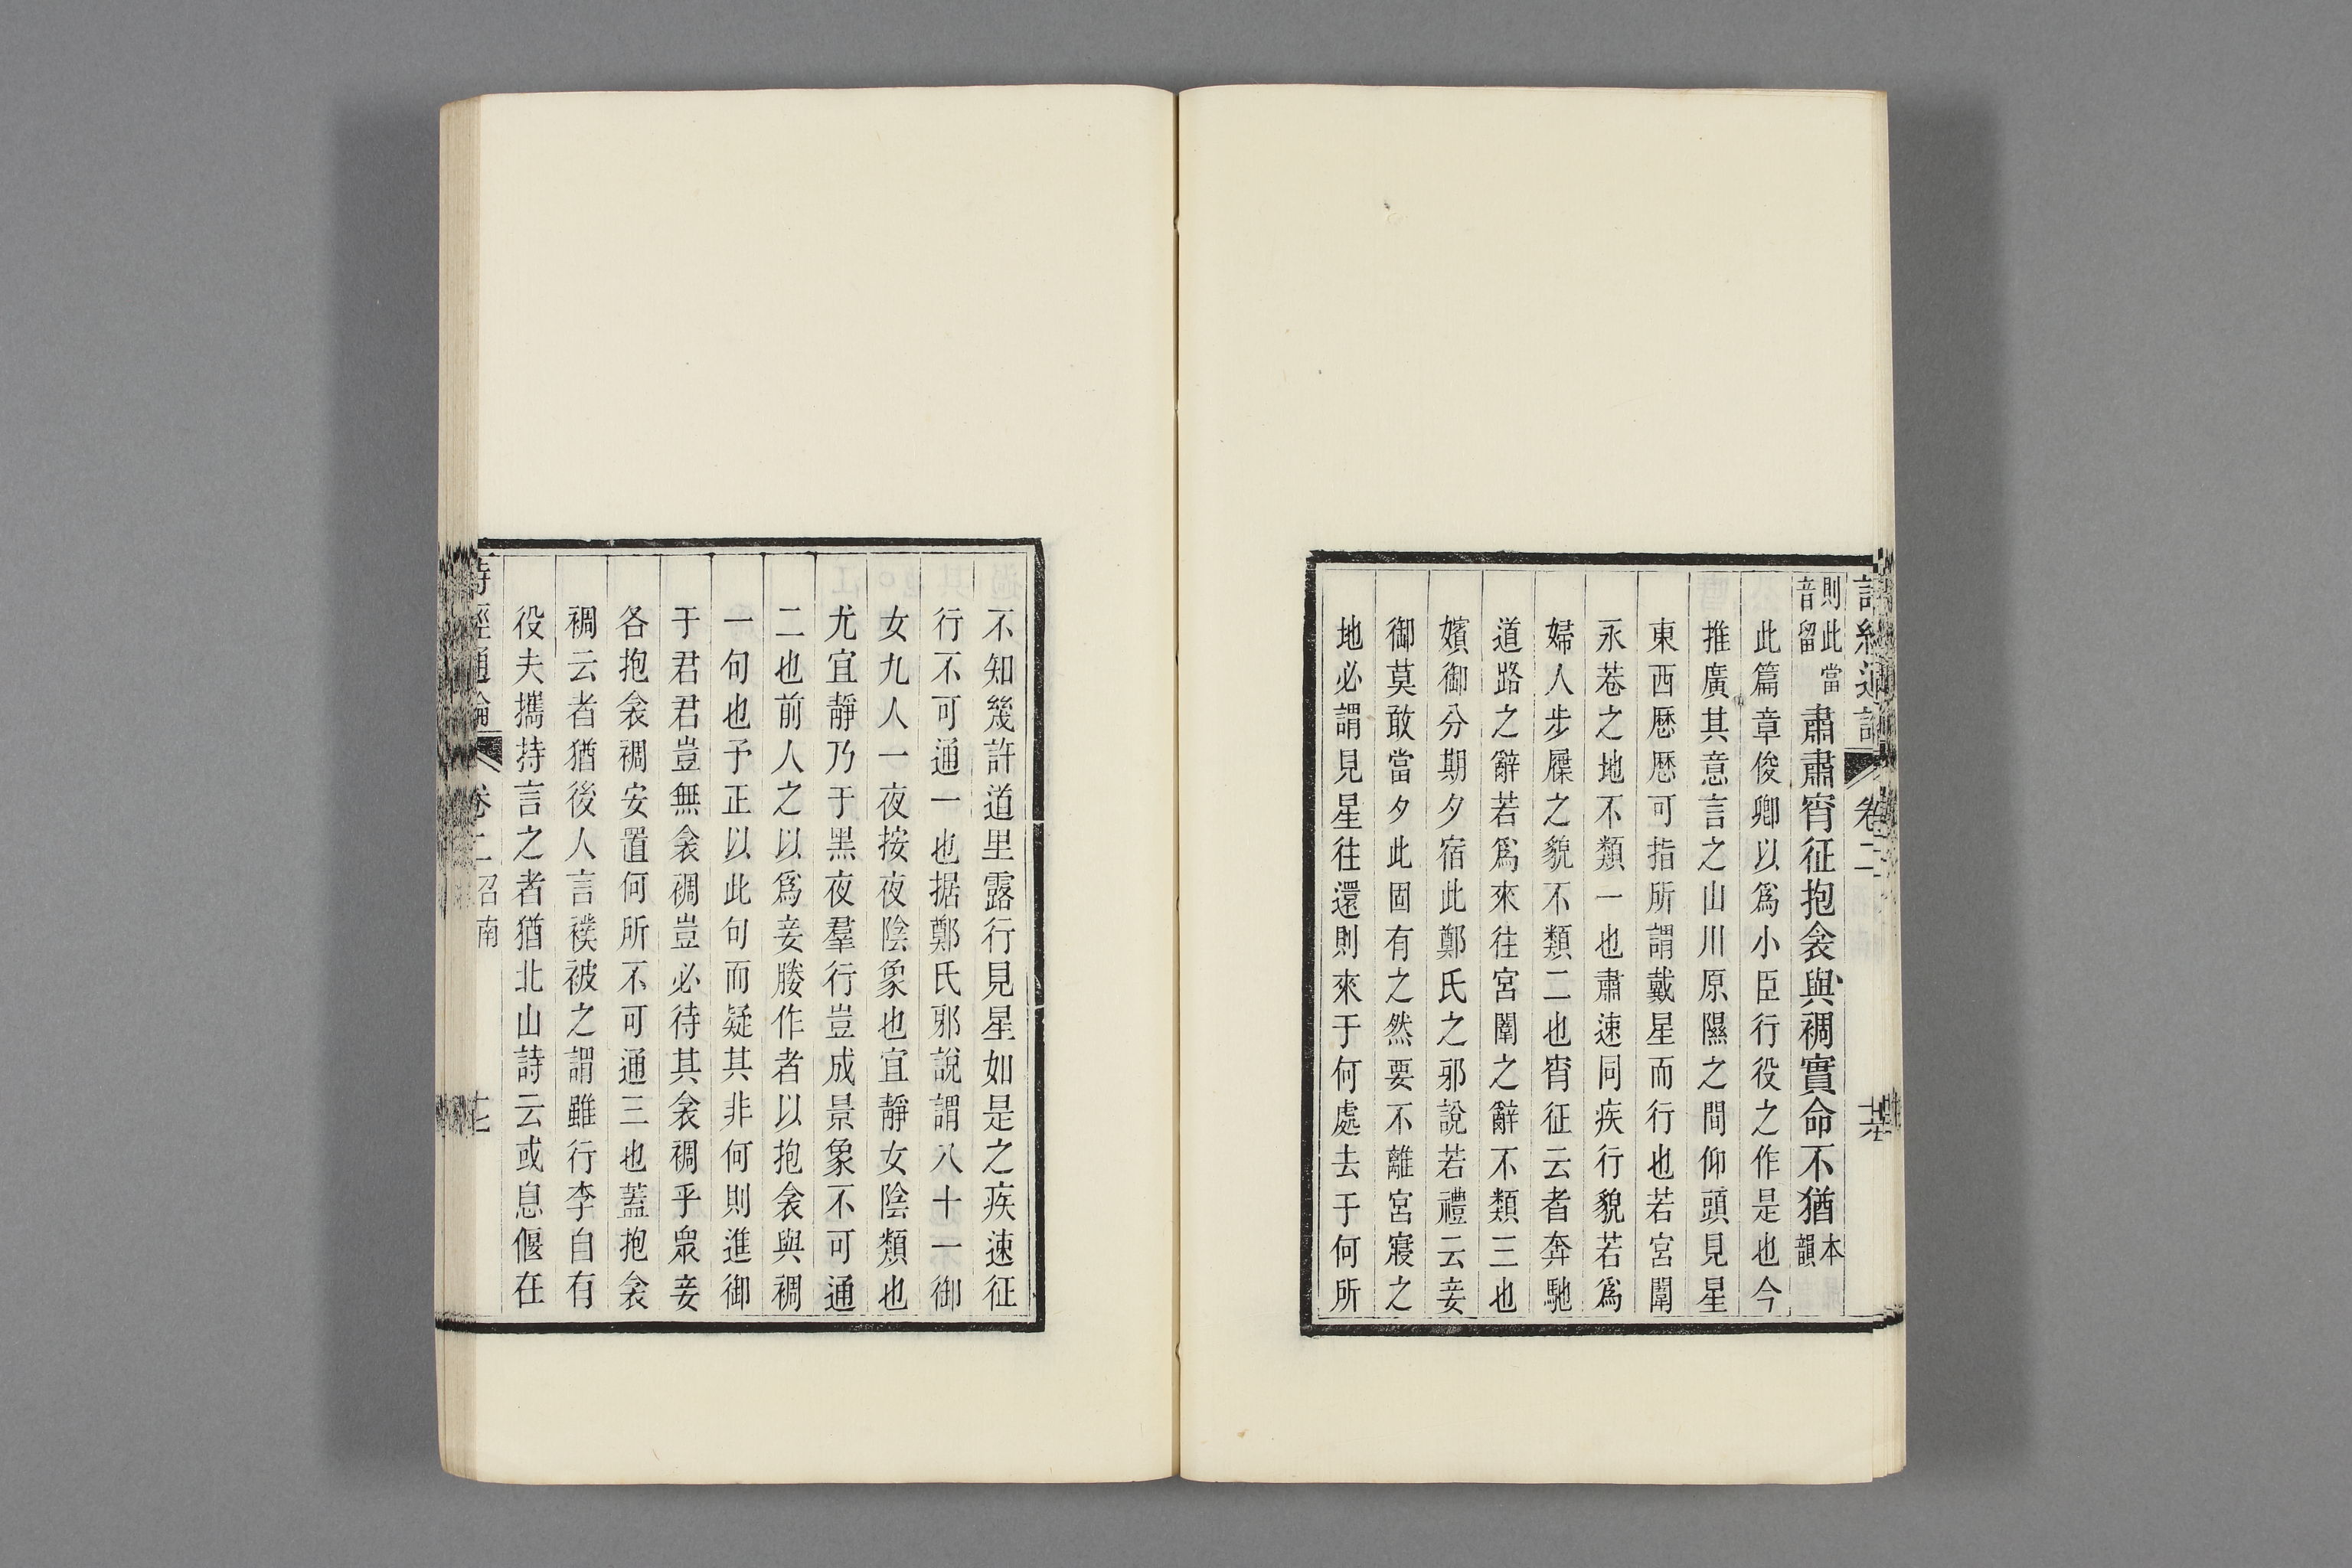 則此當音留肅肅宵征抱衾與裯實命不猶本韻
此篇章俊卿以爲小臣行役之作是也今
推廣其意言之山川原隰之間仰頭見星
東西歷歷可指所謂戴星而行也若宮闈
永巷之地不類一也肅速同疾行貌若爲
婦人步屧之貌不類二也宵征云者奔馳
道路之辭若爲來往宮闈之辭不類三也
嬪御分期夕宿此鄭氏之邪說若禮云妾
御莫敢當夕此固有之然要不離宮寢之
地必謂見星往還則來于何處去于何所
不知幾許道里露行見星如是之疾速征
行不可通一也据鄭氏邪說謂八十一御
女九人一夜按夜陰象也宜靜女陰類也
尤宜靜乃于黑夜羣行豈成景象不可通
二也前人之以爲妾媵作者以抱衾與裯
一句也予正以此句而疑其非何則進御
于君君豈無衾裯豈必待其衾裯乎衆妾
各抱衾裯安置何所不可通三也蓋抱衾
裯云者猶後人言襆被之謂雖行李自有
役夫攜持言之者猶北山詩云或息偃在
詩經通論 卷二 召南